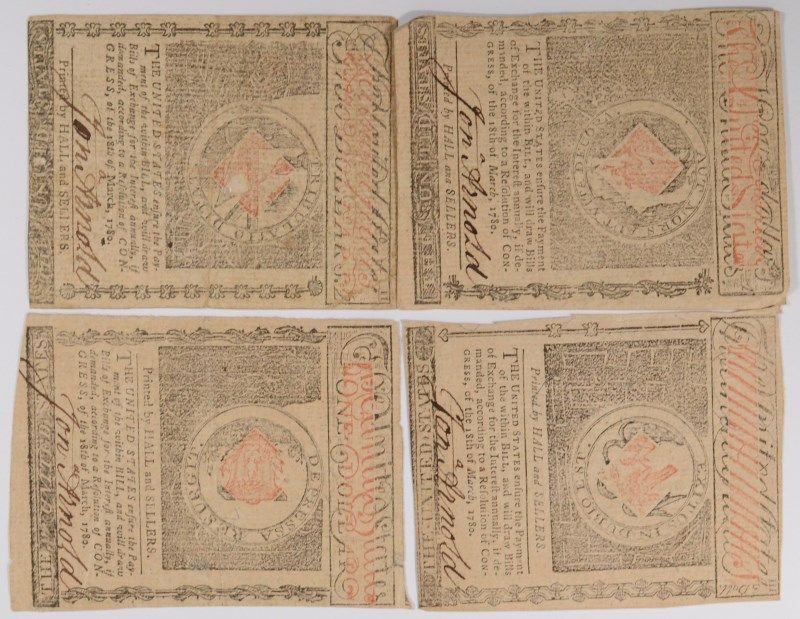 The United States
TRIBULATIO DITAT
THE UNITED STATES ensure the Pay-
ment of the within BILL, and will draw
Bills of Exchange for the Interest annually, if
demanded, according to a Resolution of CON-
GRESS, of the 18th of March, 1780.
Printed by HALL and SELLERS.
Jon Arnold
The United States
THE UNITED STATES ensure the Payment
of the within BILL, and will draw Bills
of Exchange for the Interest annually, if de-
manded, according to a Resolution of CON-
GRESS, of the 18th of March, 1780.
Printed by HALL and SELLERS.
Jon Arnold
The United States
ONE DOLLAR
DEPRESSA RESURGIT
Printed by HALL and SELLERS.
THE UNITED STATES ensure the Pay-
ment of the within BILL, and will draw
Bills of Exchange for the Interest annually, if
demanded, according to a Resolution of CON-
GRESS, of the 18th of March, 1780.
Jon Arnold
The United States
EXITUS IN DUBIO EST
Printed by HALL and SELLERS.
THE UNITED STATES ensure the Payment
of the within BILL, and will draw Bills
of Exchange for the Interest annually, if de-
manded, according to a Resolution of CON-
GRESS, of the 18th of March, 1780.
Jona Arnold
THE UNITED STATES